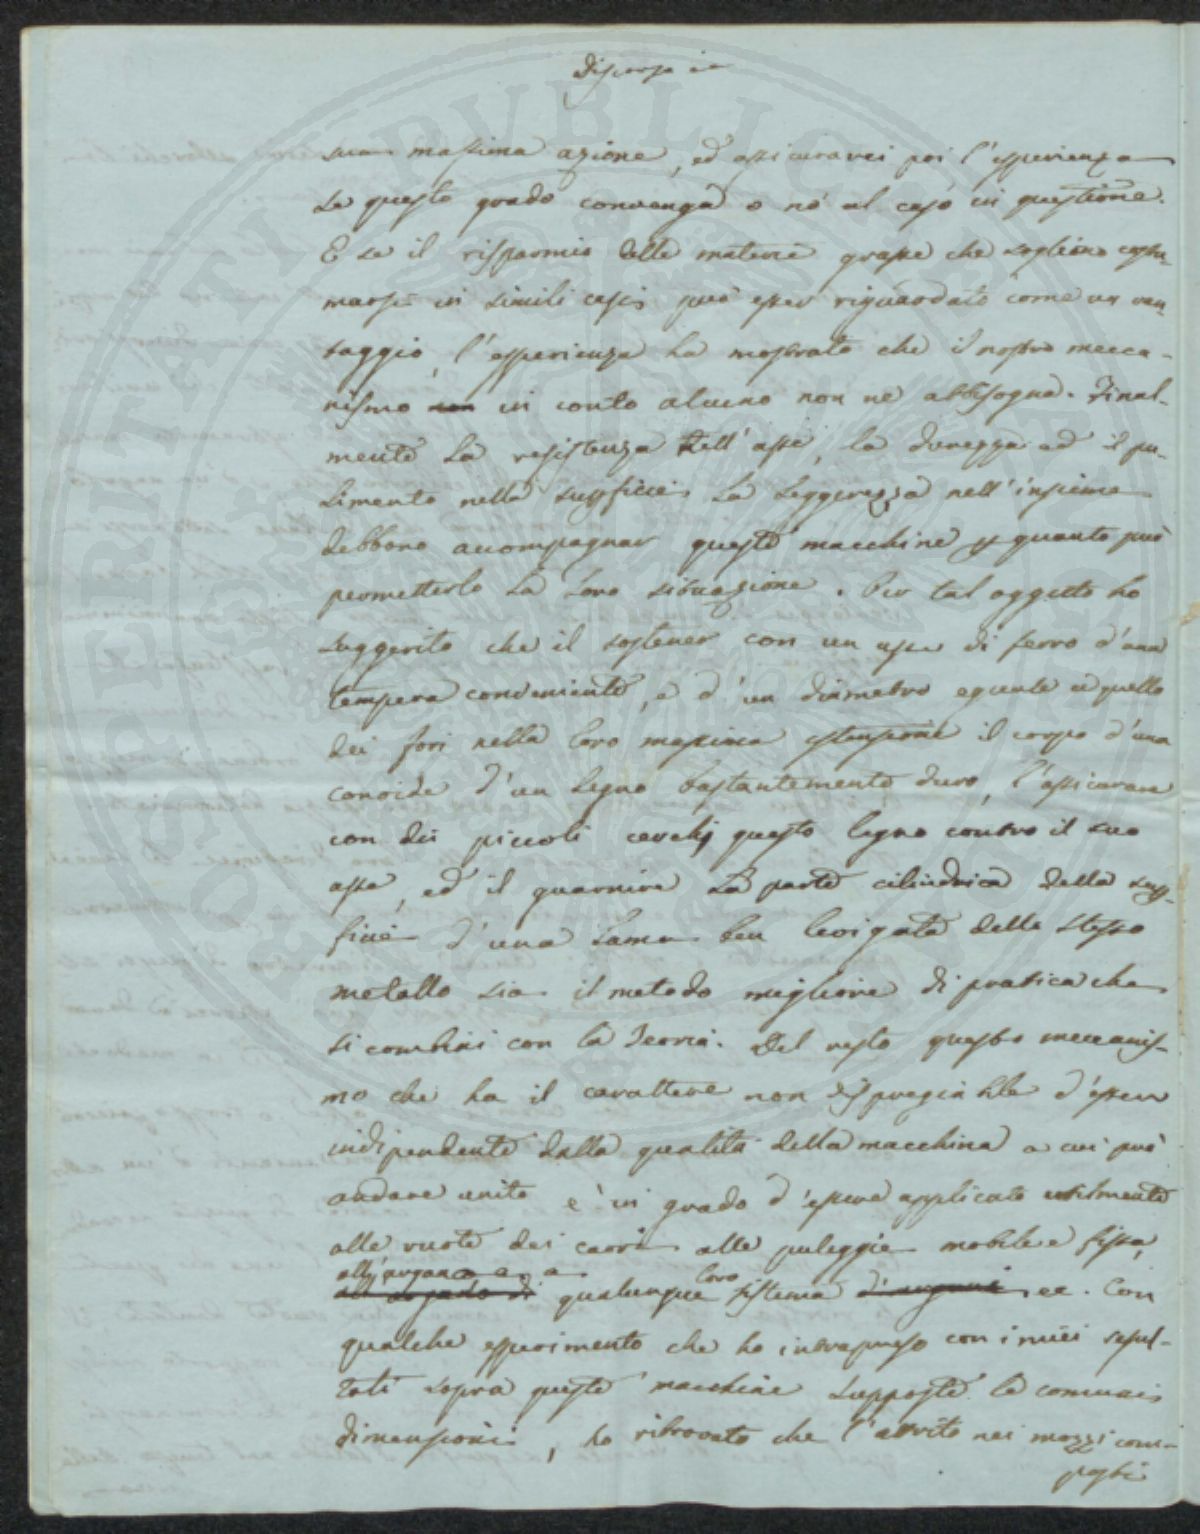 sua massima azione, ed assicuravci poi l'esperienza
se questo grado convenga o nò al caso in questione.
E se il risparmio delle materie grasse che sogliono consu-
marsi in simili casi può esser riguardato come un van-
taggio, l'esperienza ha mostrato che il nostro mecca-
nismo non in conto alcuno non ne abbisogna. Final-
mente la resistenza dell'asse, la durezza ed il pu-
limento nella superficie, la leggerezza nell'insieme
debbono accompagnar queste macchine per quanto può
permetterlo la loro situazione. Per tal oggetto ho
suggerito che il sostener con un asse di ferro d'una
tempera conveniente, e d'un diametro eguale a quello
dei fori nella loro massima estensione il corpo d'una
conoide d'un legno bastantemente duro, l'assicurare
con dei piccoli cerchj questo legno contro il suo
asse, ed il guarnire la parte cilindrica della super-
ficie d'una lama ben levigata dello stesso
metallo sia il metodo migliore di pratica che
si combini con la Teoria. Del resto questo meccanis-
mo che ha il carattere non dispregiabile d'esser
indipendente dalla qualità della macchina a cui può
andare unito è in grado d'essere applicato utilmente
alle ruote dei carri alle puleggie mobile e fissa,
all'argano a
qualunque loro sistema d'argani ec. Con
qualche esperimento che ho intrapreso con i miei resul-
tati sopra queste macchine supposte le comuni
dimensioni, ho ritrovato che l'attrito nei mozzi com-
posti
SPERITATI PVBLICAE